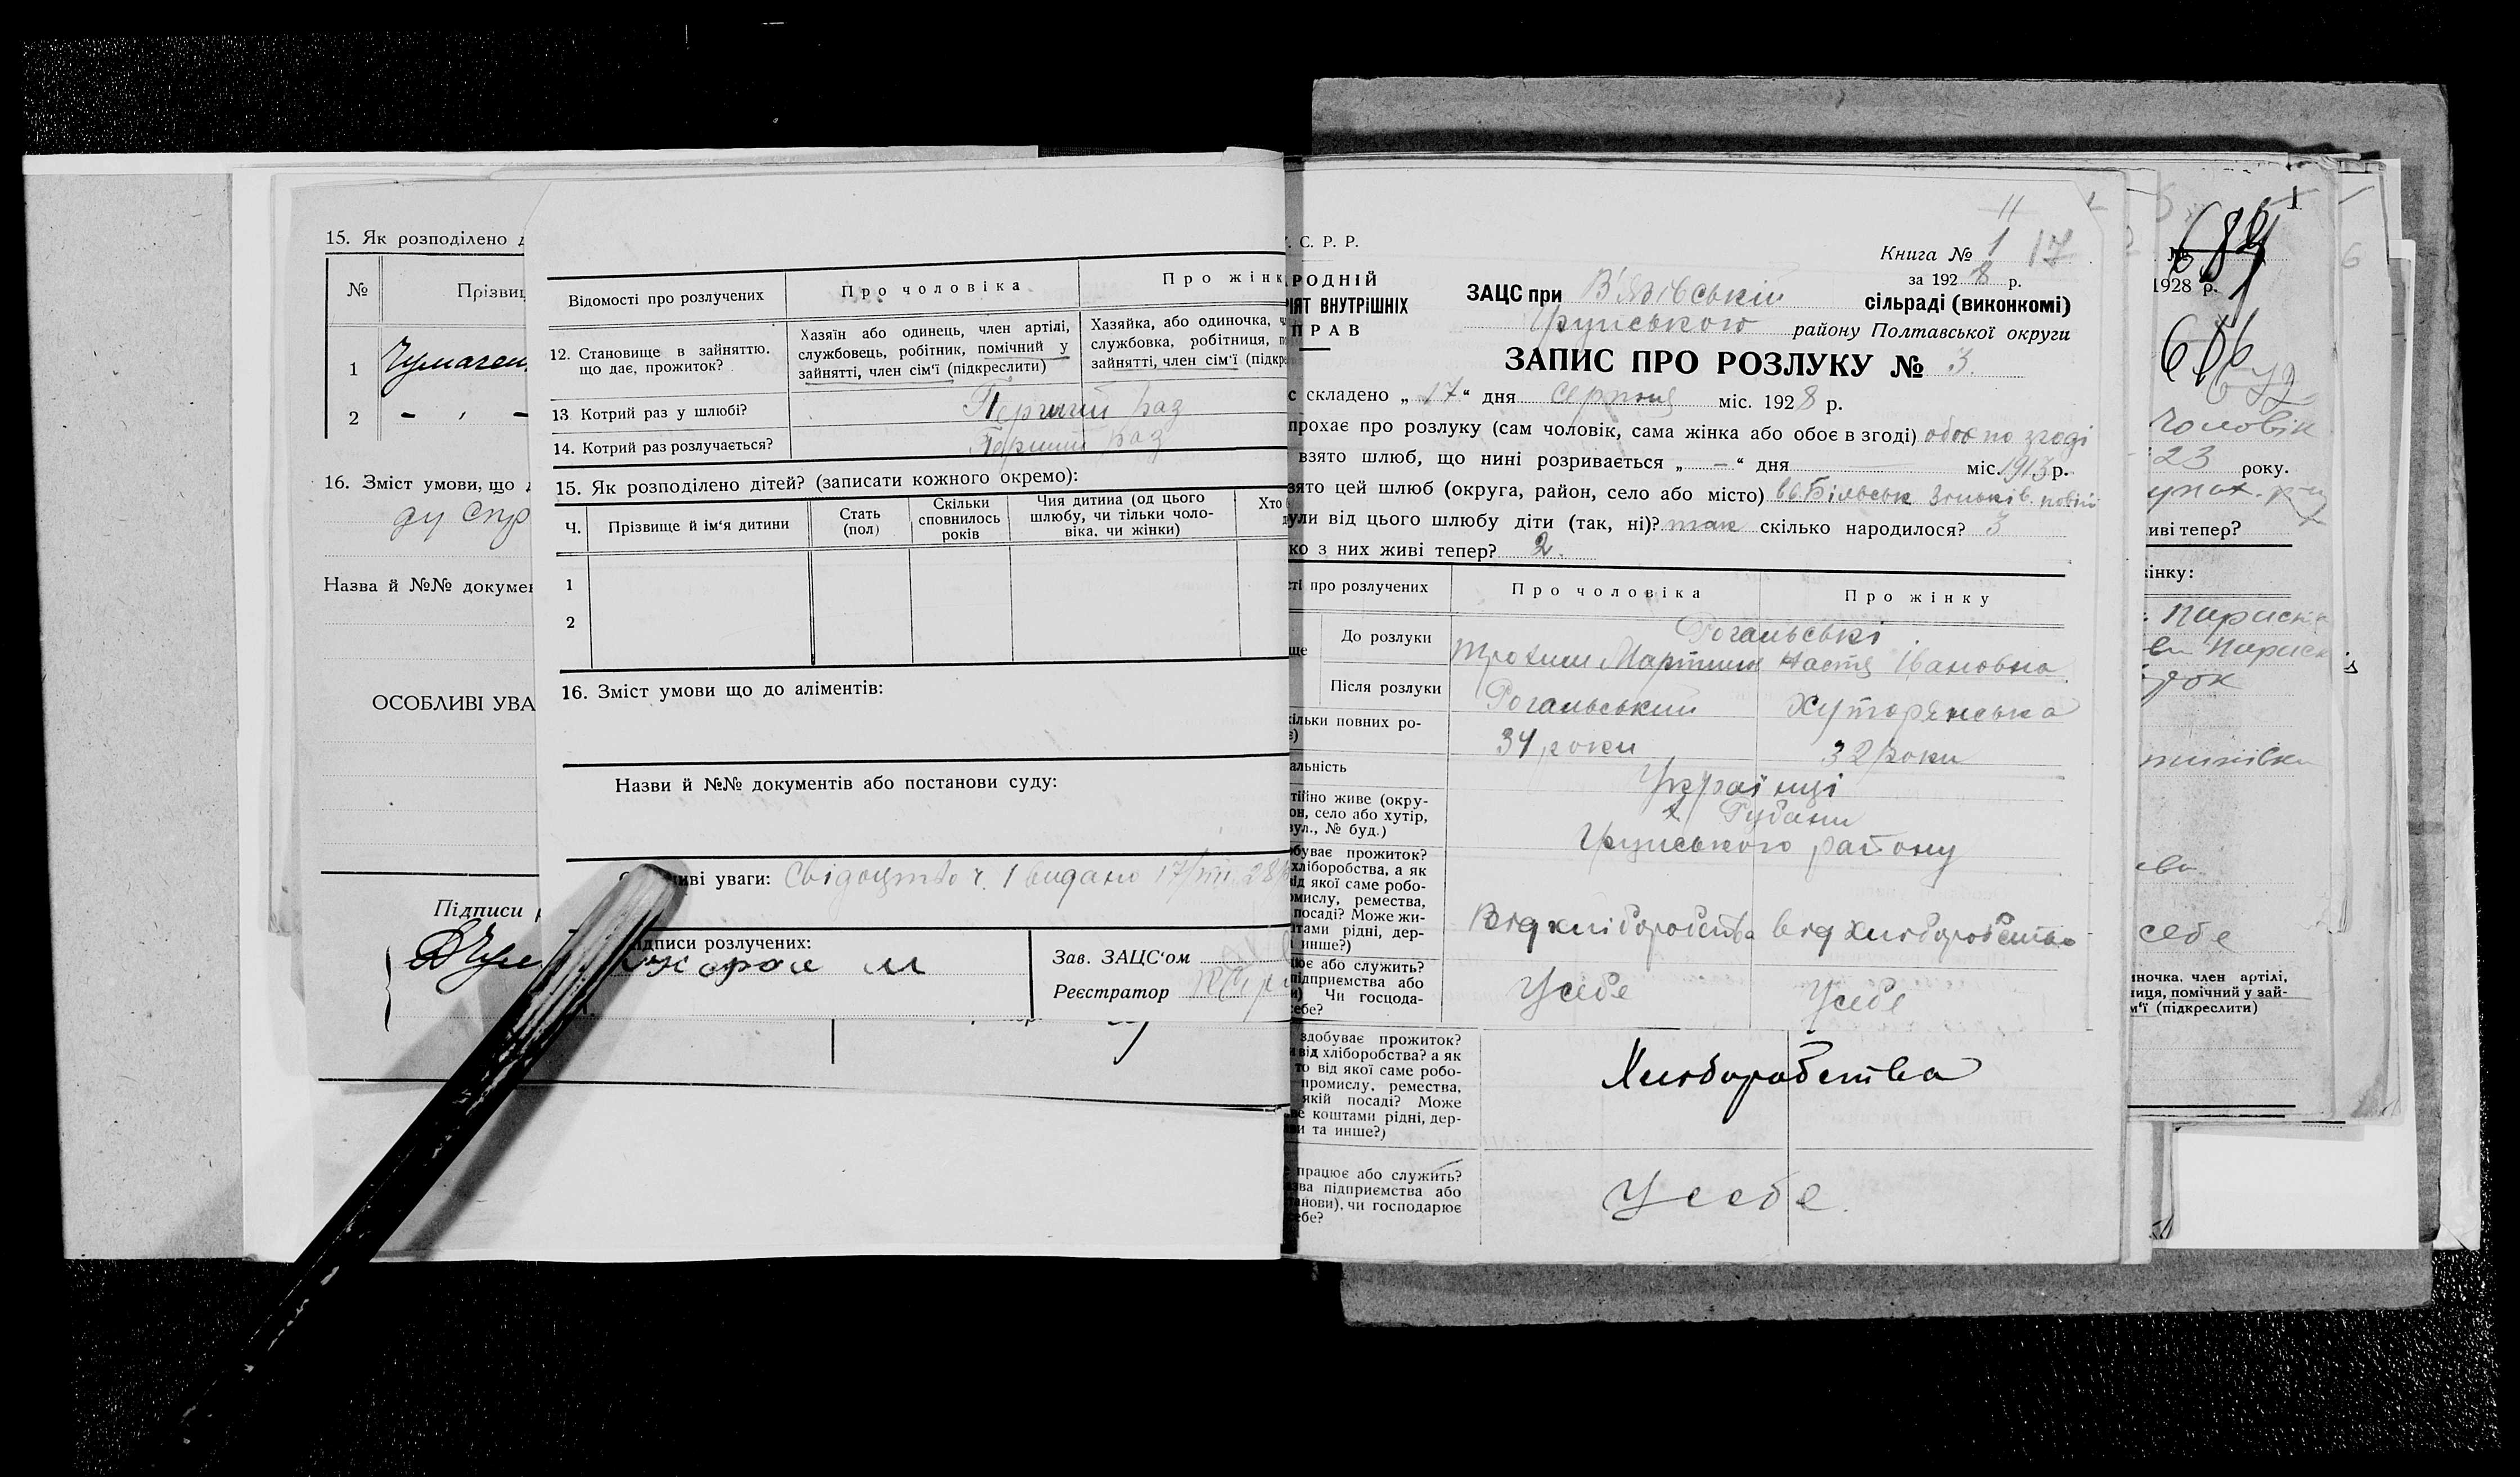 15. Як розподілено д
№
Прізвищ
1
Чумачен
2
16. Зміст умови, що д
ду спр
Назва й №№ докумен
ОСОБЛИВІ УВА
Підписи
Відомості про розлучених
Про чоловіка
Про жінк
12. Становище в зайняттю.
що дає, прожиток?
Хазяїн або одинець, член артілі,
службовець, робітник, помічний у
зайнятті, член сім'ї (підкреслити)
Хазяйка, або одиночка, ч
службовка, робітниця, п
зайнятті, член сім'ї (підкре
13 Котрий раз у шлюбі?
Перший раз
14. Котрий раз розлучається?
Перший раз
15. Як розподілено дітей? (записати кожного окремо):
Ч.
Прізвище й ім'я дитини
Стать
(пол)
Скільки
сповнилось
років
Чия дитина (од цього
шлюбу, чи тільки чоло-
віка, чи жінки)
Хто
1
2
16. Зміст умови що до аліментів:
Назви й №№ документів або постанови суду:
иві уваги: Свідоцтво ч. 1 видано 17/VIII 28
дписи розлучених:
Зав. ЗАЦС'ом
Реєстратор
. С. Р. Р.
РОДНІЙ
ІЯТ ВНУТРІШНІХ
ПРАВ
11
Книга № 1 17
за 1928 р.
ЗАЦС при В'язівській сільраді (виконкомі)
Грунського району Полтавської округи
ЗАПИС ПРО РОЗЛУКУ № 3.
с складено „17“ дня серпня міс. 1928 р.
прохає про розлуку (сам чоловік, сама жінка або обоє в згоді) обоє по згоді
взято шлюб, що нині розривається „ — “ дня — міс. 1913 р.
зято цей шлюб (округа, район, село або місто) в с. Більськ Зіньків. повіт
ули від цього шлюбу діти (так, ні)? так скілько народилося? 3
ко з них живі тепер? 2.
ті про розлучених
Про чоловіка
Про жінку
ще
До розлуки
Рогальські
Трохим Мартин Настя Івановна
Після розлуки
Рогальський
Хуторянська
кільки повних ро-
34 роки
32 роки
альність
Українці
тійно живе (окру-
он, село або хутір,
вул., № буд.)
х Рубани
Грунського району
обуває прожиток?
хліборобства, а як
від якої саме робо-
омислу, ремества,
посаді? Може жи-
тами рідні, дер-
інше?)
Від хліборобства
від хліборобства
ює або служить?
підприємства або
и) Чи господа-
себе?
У себе
У себе
здобуває прожиток?
від хліборобства? а як
то від якої саме робо-
промислу, ремества,
якій посаді? Може
ве коштами рідні, дер-
ви та инше?)
Хліборобства
працює або служить?
зва підприємства або
танови), чи господарює
ебе?
У себе.
1928 р.
686
Чоловік
23 року.
иві тепер?
інку:
Париска
док
ево
себе
ночка, член артілі,
ниця, помічний у зай-
м'ї (підкреслити)
6